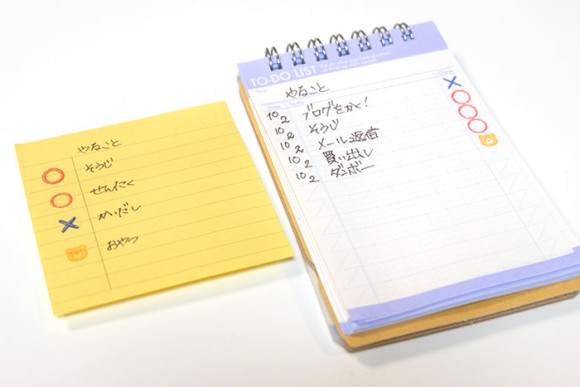 やること
そうじ
せんたく
かいだし
おやつ
TO-DO LIST
やること
10/2 ブログをかく!
10/2 そうじ
10/2 メール返信
10/2 買い出し
10/2 ダンボー